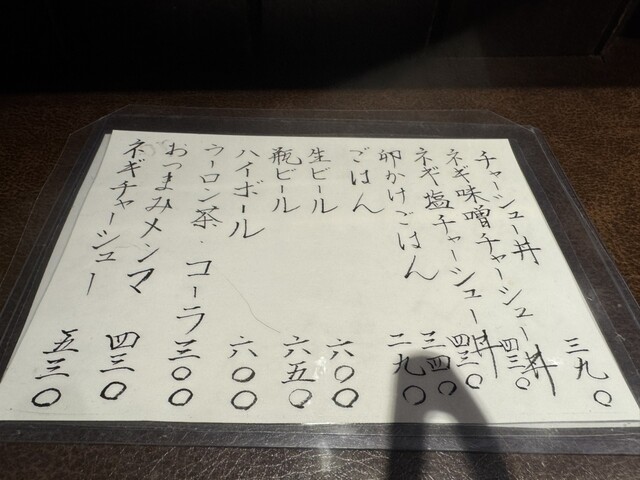 チャーシュー丼 三九〇
ネギ味噌チャーシュー丼 四三〇
ネギ塩チャーシュー丼 四三〇
卵かけごはん 三四〇
ごはん 二九〇
生ビール 六〇〇
瓶ビール 六五〇
ハイボール 六〇〇
ウーロン茶・コーラ 三〇〇
おつまみメンマ 四三〇
ネギチャーシュー 五三〇